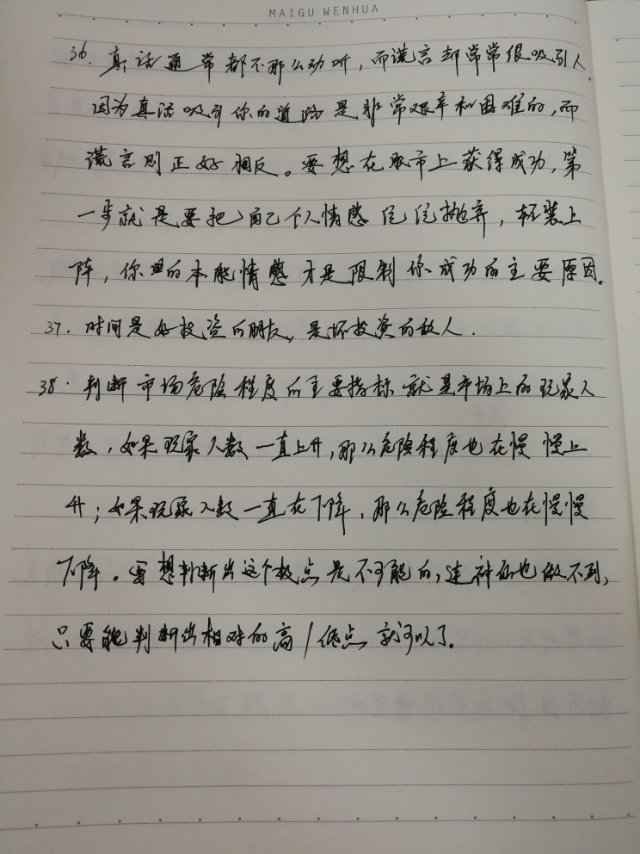 MAIGU WENHUA
36. 真话通常都不那么动听，而谎言却常常很吸引人
因为真话吸引你的道路是非常艰辛和困难的，而
谎言则正好相反。要想在股市上获得成功，第
一步就是要把自己个人情感统统抛弃，轻装上
阵，你的本能情感才是限制你成功的主要原因。
37. 时间是好投资的朋友，是坏投资的敌人.
38. 判断市场危险程度的主要指标就是市场上的玩家人
数，如果玩家人数一直上升，那么危险程度也在慢慢上
升；如果玩家人数一直在下降，那么危险程度也在慢慢
下降。要想判断出这个极点是不可能的，连神仙也做不到，
只要能判断出相对的高/低点就可以了。